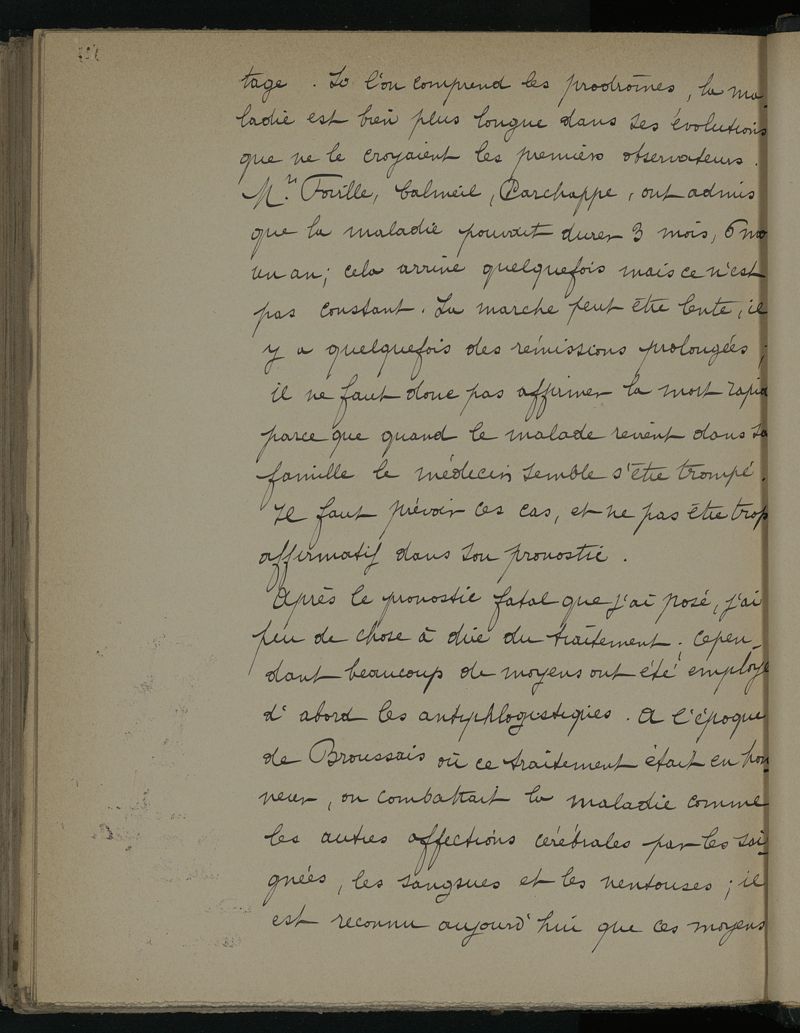 tage. Si l'on comprend les prodrômes, la ma-
ladie est bien plus longue dans ses évolutions
que ne le croyaient les premiers observateurs.
M.rs Foville, Calmeil, Parchappe, ont admis
que la maladie pouvait durer 3 mois, 6 mo
un an; cela arrive quelquefois mais ce n'est
pas constant. La marche peut être lente, il
y a quelquefois des rémissions prolongées;
il ne faut donc pas affirmer la mort rapid
parce que quand le malade revient dans sa
famille le médecin semble s'être trompé.
Il faut prévoir ces cas, et ne pas être trop
affirmatif dans son pronostic.
Après le pronostic fatal que j'ai posé, j'ai
peu de chose à dire du traitement. Cepen-
dant beaucoup de moyens ont été employé
d'abord les antiphlogistiques. A l'époque
de Broussais où ce traitement était en hon-
neur, on combattait la maladie comme
les autres affections cérébrales par les sai-
gnées, les sangsues et les ventouses; il
est reconnu aujourd'hui que ces moyens